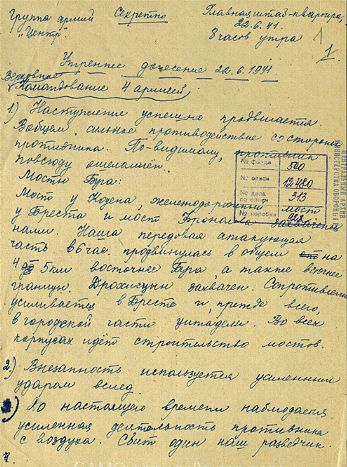 Группа армий Секретно Главная штаб-квартира
"Центр" 22.6.41.
8 часов утра
1
Утреннее донесение 22.6.1941
Верховное
Командование 4 армией
1) Наступление успешно продвигается.
Вообщем, сильное противодействие со стороны
противника. По-видимому, противник
повсюду ошеломлен.
Мосты Буга:
Мост у Кодена, железнодорожный мост
у Бреста и мост захвачены
нами. Наша передовая атакующая
часть в 6 час. продвинулась в общем на
4 5 км восточнее Буга, а также южнее
границы. Дрохичин захвачен. Сопротивление
усиливается в Бресте и, прежде всего,
в городской части цитадели. Во всех
корпусах идёт строительство мостов.
2) Внезапность используется усиленным
ударом вслед.
3) До настоящего времени наблюдается
усиленная деятельность противника
с воздуха. Сбит один наш разведчик.
№ фонда 500
№ описи 12480
№ дела 313
№ коробки